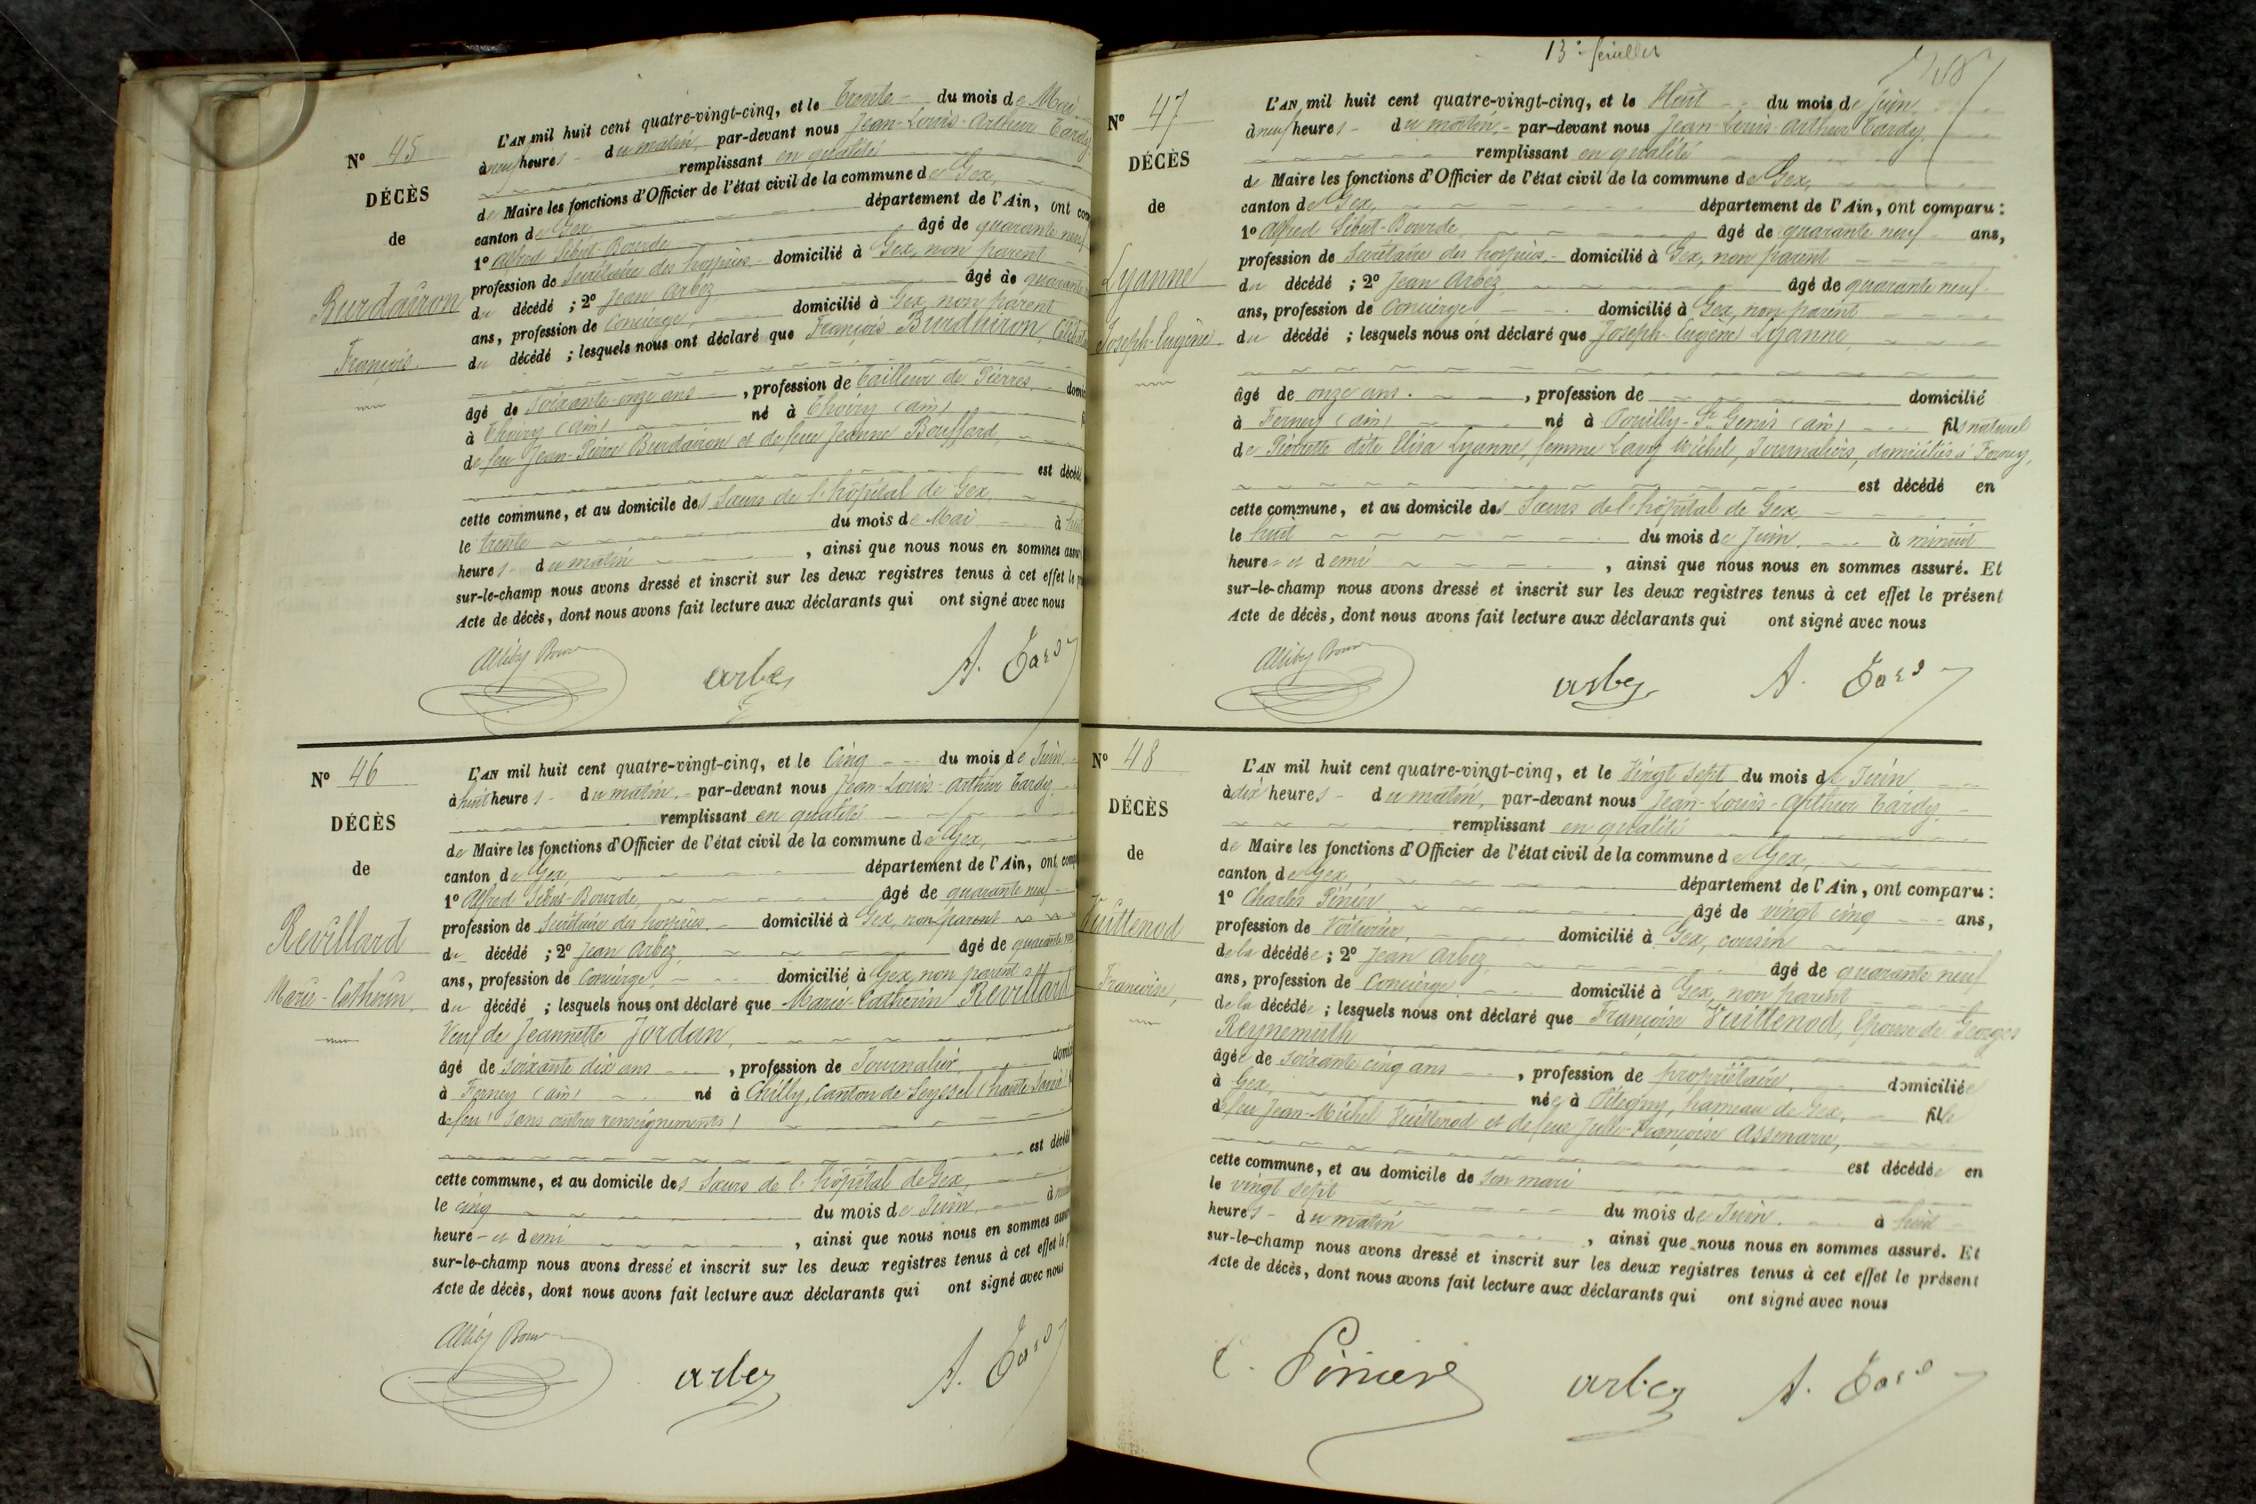 Nº 45
DÉCÈS
de
Burdairon
François.
L'AN mil huit cent quatre-vingt-cinq, et le Trente du mois de Mai
à neuf heures du matin, par-devant nous Jean-Louis-Arthur Tardy
remplissant en qualité
de Maire les fonctions d'Officier de l'état civil de la commune de Gex,
canton de Gex département de l'Ain, ont
1º Alfred Sibut-Bourde âgé de quarante neuf
profession de Secrétaire des hospices, domicilié à Gex, non parent
du décédé ; 2º Jean Arbez âgé de quarante
ans, profession de Concierge, domicilié à Gex, non parent
du décédé ; lesquels nous ont déclaré que François Burdairon,
âgé de soixante-onze ans, profession de Tailleur de Pierres
à Thoiry (ain) né à Thoiry (ain)
de feu Jean-Pierre Burdairon et de feue Jeanne Bouffard,
est décédé
cette commune, et au domicile des Sœurs de l'hôpital de Gex
le trente du mois de Mai à
heures du matin, ainsi que nous nous en sommes
sur-le-champ nous avons dressé et inscrit sur les deux registres tenus à cet effet le
Acte de décès, dont nous avons fait lecture aux déclarants qui ont signé avec nous
arbez A. Tardy
Nº 46
DÉCÈS
de
Revillard
Marie-Catherin,
L'AN mil huit cent quatre-vingt-cinq, et le Cinq du mois de Juin
à huit heures du matin, par-devant nous Jean-Louis-Arthur Tardy,
remplissant en qualité
de Maire les fonctions d'Officier de l'état civil de la commune de Gex,
canton de Gex département de l'Ain, ont
1º Alfred Sibut-Bourde, âgé de quarante neuf
profession de Secrétaire des hospices, domicilié à Gex, non parent
du décédé ; 2º Jean Arbez, âgé de quarante
ans, profession de Concierge, domicilié à Gex, non parent
du décédé ; lesquels nous ont déclaré que Marie-Catherin Revillard
Veuf de Jeannette Jordan,
âgé de soixante dix ans, profession de Journalier,
à Ferney (ain) né à Chilly, Canton de Seyssel (haute Savoie)
de feu (sans autres renseignements)
est décédé
cette commune, et au domicile des Sœurs de l'hôpital de Gex,
le cinq du mois de Juin, à
heure et demi, ainsi que nous nous en sommes
sur-le-champ nous avons dressé et inscrit sur les deux registres tenus à cet effet le
Acte de décès, dont nous avons fait lecture aux déclarants qui ont signé avec nous
arbez A. Tardy
13e feuillet
Nº 47
DÉCÈS
de
Lyanne
Joseph-Eugène
L'AN mil huit cent quatre-vingt-cinq, et le Huit du mois de Juin
à neuf heures du matin, par-devant nous Jean-Louis-Arthur Tardy,
remplissant en qualité
de Maire les fonctions d'Officier de l'état civil de la commune de Gex,
canton de Gex, département de l'Ain, ont comparu :
1º Alfred Sibut-Bourde âgé de quarante neuf ans,
profession de Secrétaire des hospices, domicilié à Gex, non parent
du décédé ; 2º Jean Arbez, âgé de quarante neuf
ans, profession de Concierge domicilié à Gex, non parent
du décédé ; lesquels nous ont déclaré que Joseph-Eugène Lyanne,
âgé de onze ans, profession de domicilié
à Ferney (ain) né à Pouilly-St Genis (ain) fils naturel
de Pierrette dite Elisa Lyanne, femme Michel, Journaliers, domiciliés à Ferney,
est décédé en
cette commune, et au domicile des Sœurs de l'hôpital de Gex,
le huit du mois de Juin, à minuit
heure et demi, ainsi que nous nous en sommes assuré. Et
sur-le-champ nous avons dressé et inscrit sur les deux registres tenus à cet effet le présent
Acte de décès, dont nous avons fait lecture aux déclarants qui ont signé avec nous
arbez A. Tardy
Nº 48
DÉCÈS
de
Vuittenod
Françoise,
L'AN mil huit cent quatre-vingt-cinq, et le Vingt sept du mois de Juin
à dix heures du matin, par-devant nous Jean-Louis-Arthur Tardy,
remplissant en qualité
de Maire les fonctions d'Officier de l'état civil de la commune de Gex,
canton de Gex département de l'Ain, ont comparu :
1º Charles âgé de vingt cinq ans,
profession de Voiturier, domicilié à Gex, cousin
de la décédée ; 2º Jean Arbez âgé de quarante neuf
ans, profession de Concierge, domicilié à Gex, non parent
de la décédée ; lesquels nous ont déclaré que Françoise Vuittenod, Epouse de Georges
Reynemuth
âgée de soixante cinq ans, profession de propriétaire, domiciliée
à Gex, née à Pitegny, hameau de Gex, fille
de feu Jean-Michel Vuittenod et de feue Julie-Françoise
est décédée en
cette commune, et au domicile de son mari
le vingt sept du mois de Juin, à huit
heures du matin, ainsi que nous nous en sommes assuré. Et
sur-le-champ nous avons dressé et inscrit sur les deux registres tenus à cet effet le présent
Acte de décès, dont nous avons fait lecture aux déclarants qui ont signé avec nous
arbez A. Tardy